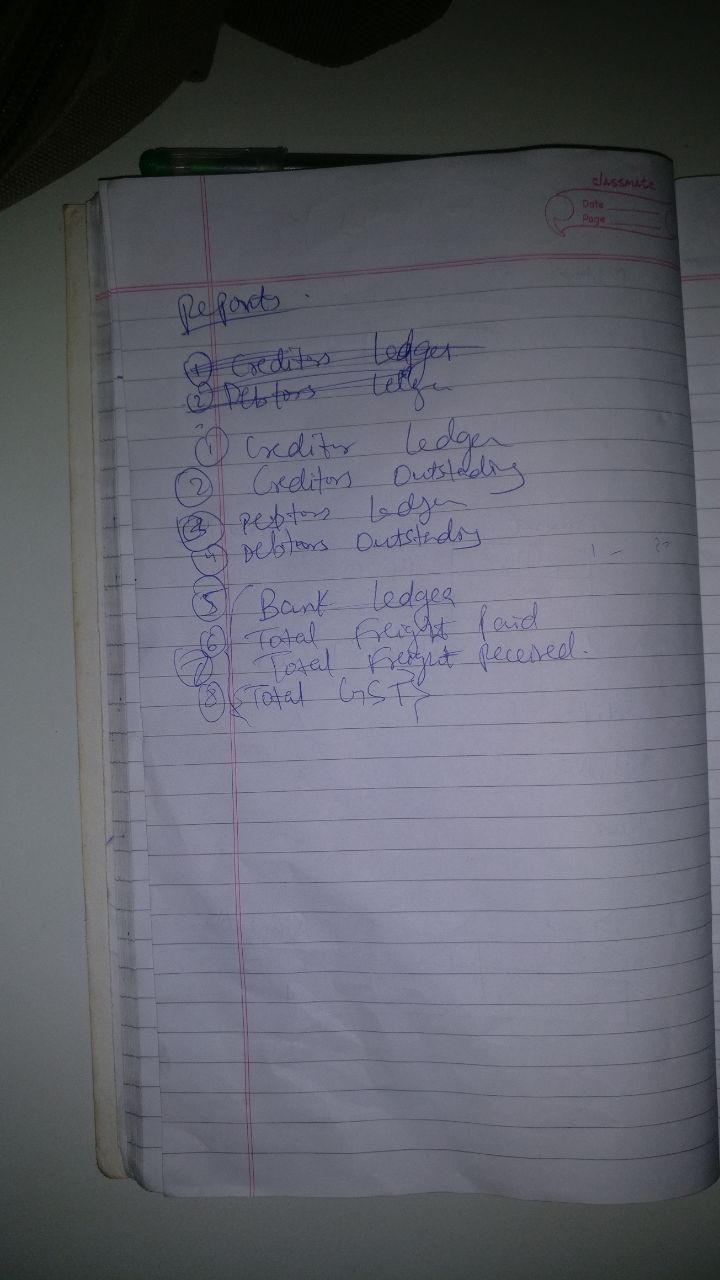 classmate
Date
Page
Reports.
① Creditors Ledger
② Debtors Ledger
① Creditor Ledger
② Creditors Outstanding
③ Debtors Ledger
④ Debtors Outstanding
⑤ Bank Ledger
⑥ Total Freight Paid
⑦ Total Freight Received.
⑧ {Total GST}